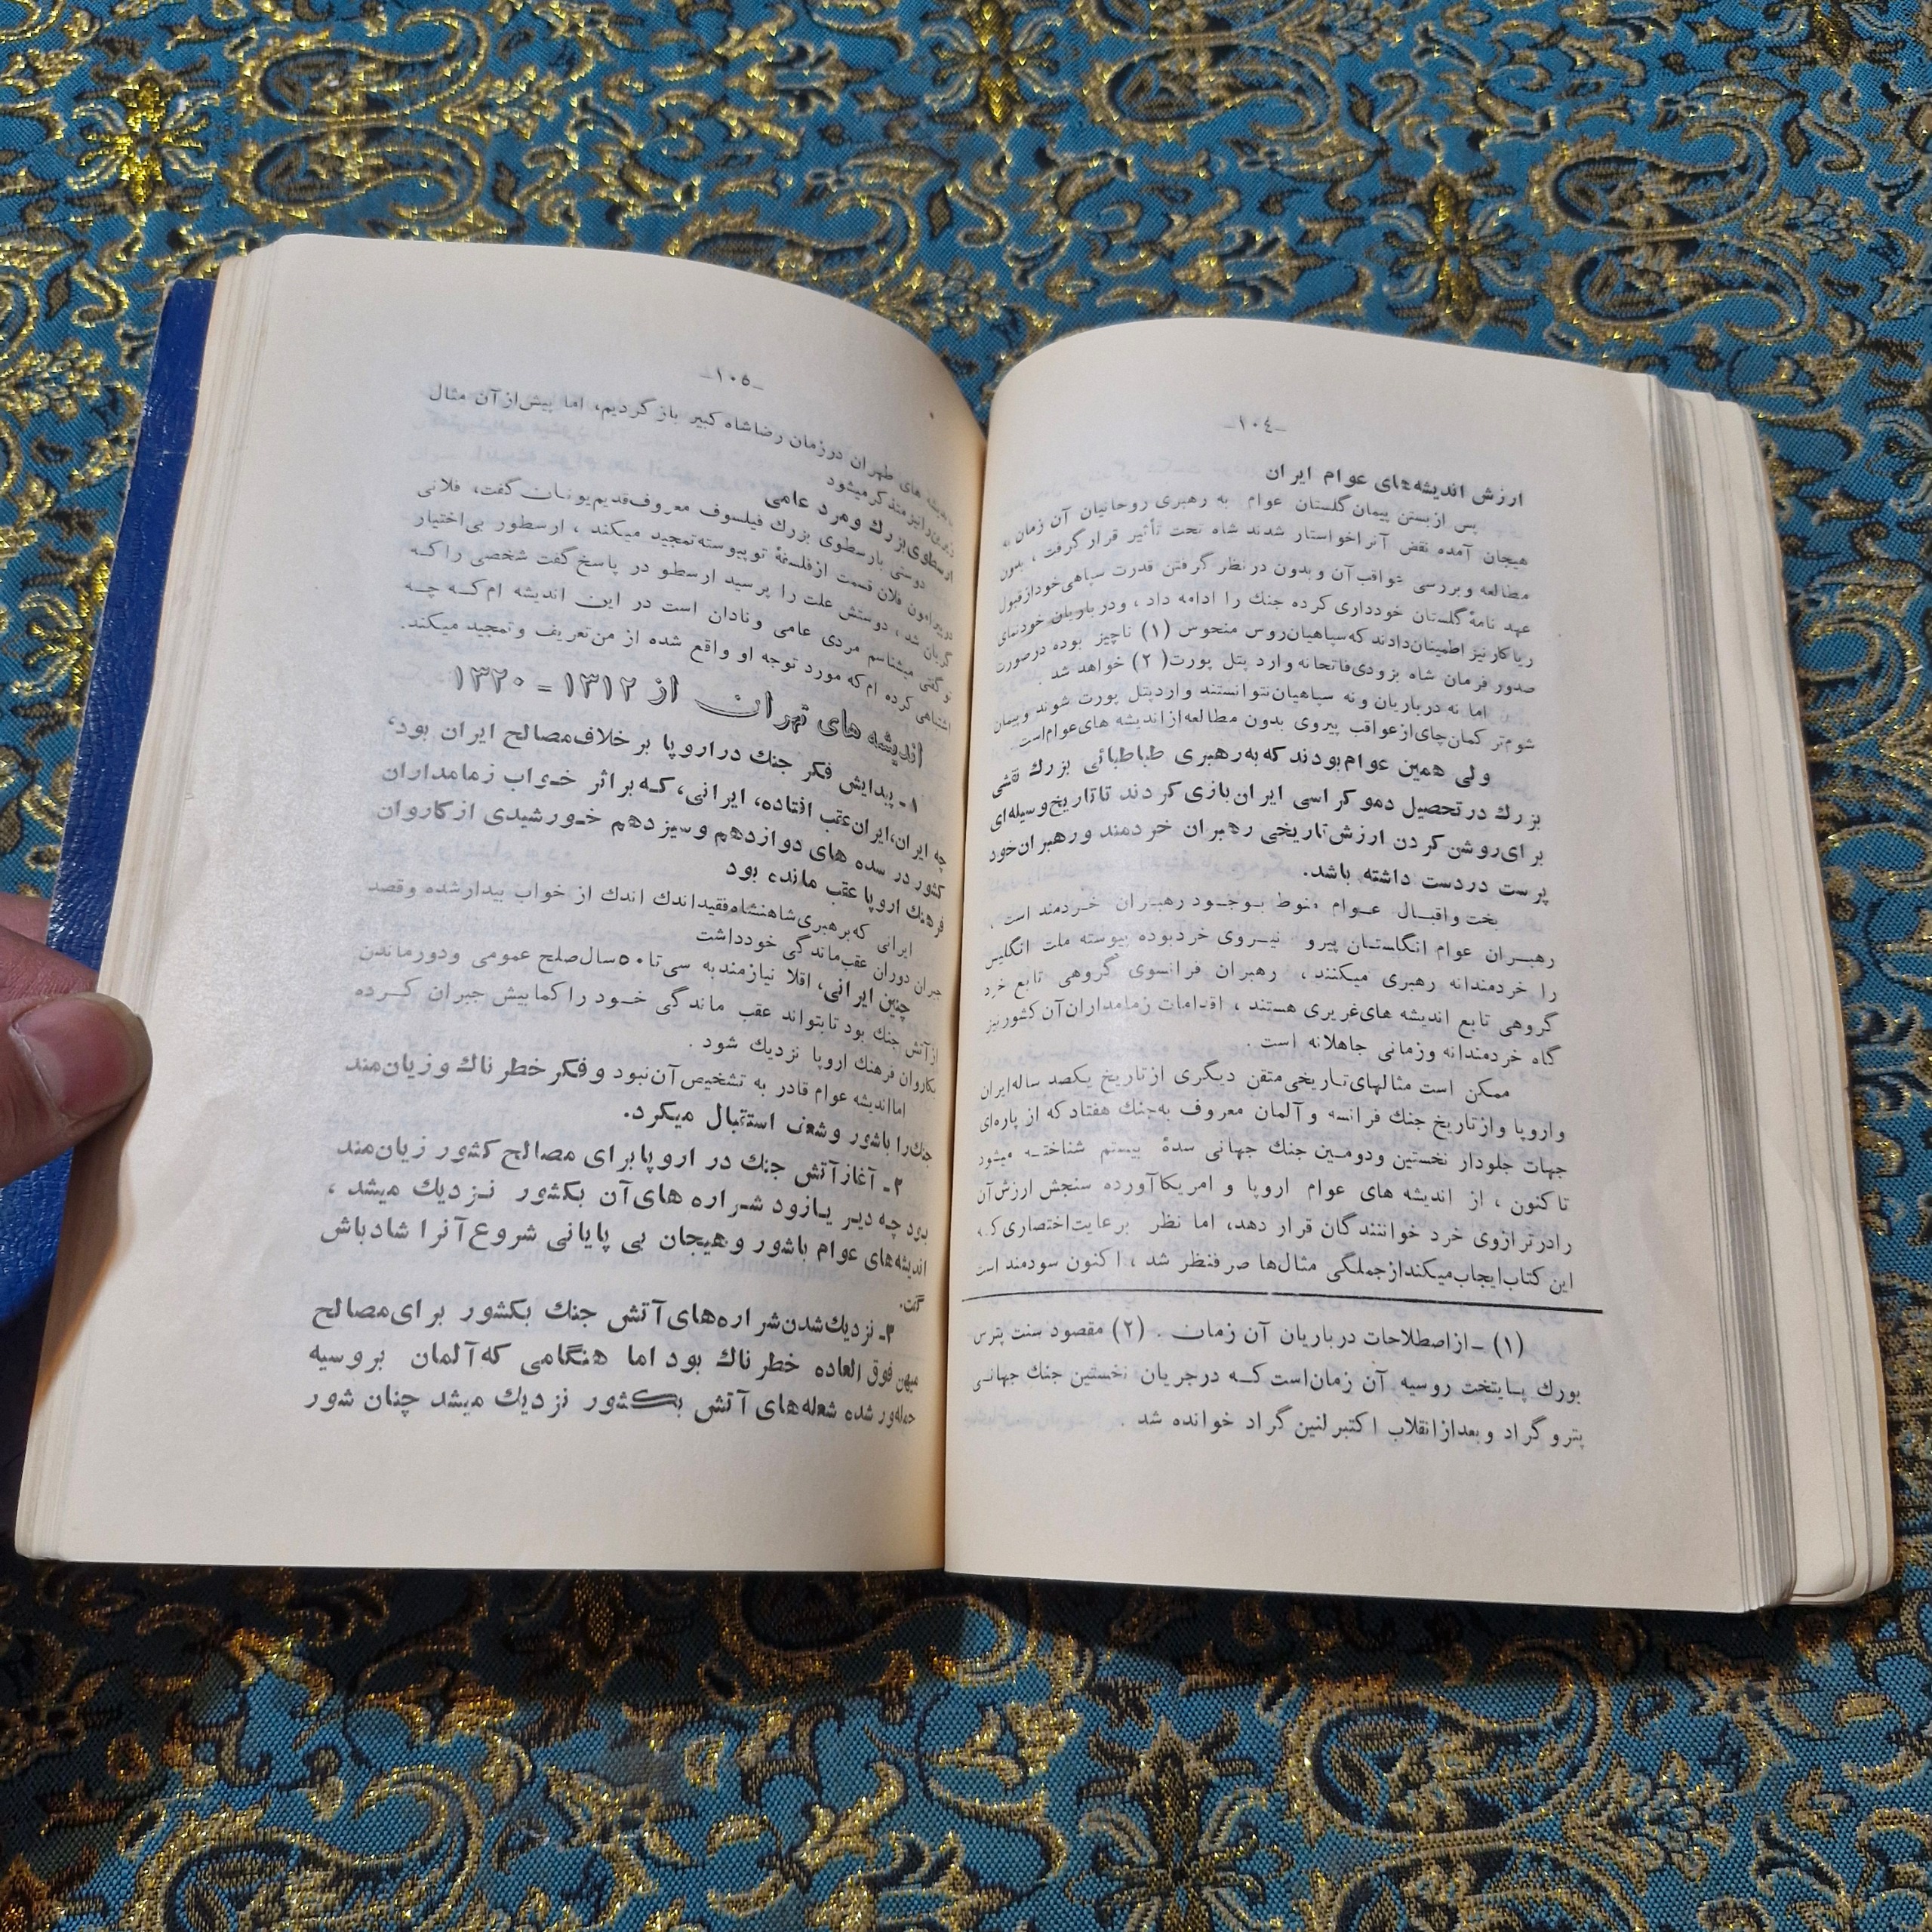 -١٠٤-
ارزش اندیشه‌های عوام ایران
پس از بستن پیمان گلستان عوام به رهبری روحانیان آن زمان به
هیجان آمده نقض آنرا خواستار شدند شاه تحت تأثیر قرار گرفت ، بدون
مطالعه و بررسی عواقب آن و بدون در نظر گرفتن قدرت سپاهی خود از قبول
عهد نامهٔ گلستان خودداری کرده جنك را ادامه داد ، و درباریان خودنمای
ریاکار نیز اطمینان دادند که سپاهیان روس منحوس (۱) ناچیز بوده در صورت
صدور فرمان شاه بزودی فاتحانه وارد پتل پورت (۲) خواهد شد .
اما نه درباریان و نه سپاهیان نتوانستند وارد پتل پورت شوند و پیمان
شوم‌تر کمان‌چای از عواقب پیروی بدون مطالعه از اندیشه های عوام است .
ولی همین عوام بودند که به رهبری طباطبائی بزرك نقشی
بزرك در تحصیل دموکراسی ایران بازی کردند تا تاریخ وسیله‌ای
برای روشن کردن ارزش تاریخی رهبران خردمند و رهبران خود
پرست در دست داشته باشد.
بخت و اقبال عوام منوط بوجود رهبران خردمند است ،
رهبران عوام انگلستان پیرو نیروی خرد بوده پیوسته ملت انگلیس
را خردمندانه رهبری میکنند ، رهبران فرانسوی گروهی تابع خرد
گروهی تابع اندیشه های غریری هستند ، اقدامات زمامداران آن کشور نیز
گاه خردمندانه و زمانی جاهلانه است .
ممکن است مثالهای تاریخی متقن دیگری از تاریخ یکصد ساله ایران
و اروپا و از تاریخ جنك فرانسه و آلمان معروف به جنك هفتاد که از پاره‌ای
جهات جلودار نخستین و دومین جنك جهانی سدهٔ بیستم شناخته میشود
تا کنون ، از اندیشه های عوام اروپا و امریکا آورده سنجش ارزش آن
را در ترازوی خرد خوانندگان قرار دهد، اما نظر برعایت اختصاری که
این کتاب ایجاب میکند از جملگی مثال‌ها صرفنظر شد ، اکنون سودمند است
(۱) - از اصطلاحات درباریان آن زمان . (۲) مقصود سنت پترس
بورك پایتخت روسیه آن زمان است که در جریان نخستین جنك جهانی
پترو گراد و بعد از انقلاب اکتبر لنین گراد خوانده شد .
-١٠٥-
های طهران در زمان رضاشاه کبیر باز گردیم، اما پیش از آن مثال
را نیز متذکر میشود
ارسطوی بزرك و مرد عامی
دوستی بارسطوی بزرك فیلسوف معروف قدیم یونان گفت، فلانی
در پیرامون فلان قسمت از فلسفهٔ تو پیوسته تمجید میکند ، ارسطور بی اختیار
گریان شد ، دوستش علت را پرسید ارسطو در پاسخ گفت شخصی را که
تو گفتی میشناسم مردی عامی و نادان است در این اندیشه ام که چه
اشتباهی کرده ام که مورد توجه او واقع شده از من تعریف و تمجید میکند.
اندیشه های تهران از ۱۳۱۲ - ۱۳۲۰
۱- پیدایش فکر جنك در اروپا بر خلاف مصالح ایران بود،
چه ایران، ایران عقب افتاده، ایرانی، که بر اثر خواب زمامداران
کشور در سده های دوازدهم و سیزدهم خورشیدی از کاروان
فرهنك اروپا عقب مانده بود
ایرانی که برهبری شاهنشاه فقید اندك اندك از خواب بیدار شده و قصد
جبران دوران عقب ماندگی خود داشت
چنین ایرانی، اقلا نیازمند به سی تا ۵۰ سال صلح عمومی و دور ماندن
از آتش جنك بود تا بتواند عقب ماندگی خود را کما بیش جبران کرده
بکاروان فرهنك اروپا نزدیك شود .
اما اندیشه عوام قادر به تشخیص آن نبود و فکر خطر ناك و زیان‌مند
جنك را با شور و شعف استقبال میکرد.
۲- آغاز آتش جنك در اروپا برای مصالح کشور زیان‌مند
بود چه دیر یا زود شراره های آن بکشور نزدیك میشد ،
اندیشه‌های عوام با شور و هیجان بی پایانی شروع آنرا شادباش
گفت.
۳- نزدیك شدن شراره‌های آتش جنك بکشور برای مصالح
میهن فوق العاده خطر ناك بود اما هنگامی که آلمان بروسیه
حمله‌ور شده شعله‌های آتش بکشور نزدیك میشد چنان شور